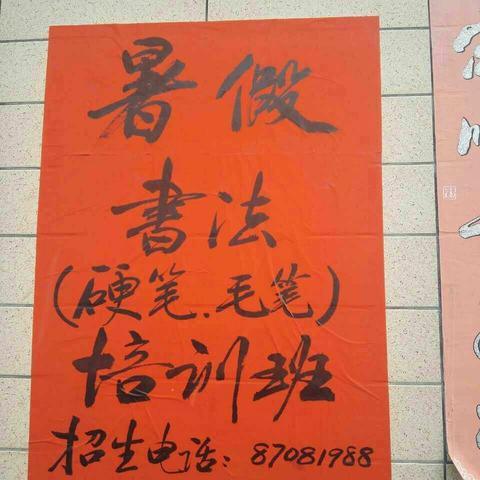 暑假
書法
(硬笔、毛笔)
培训班
招生电话：87081988